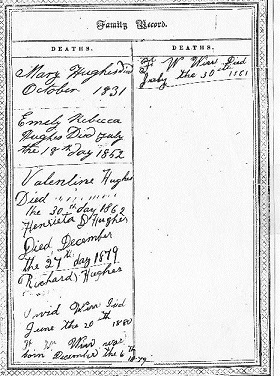 Family Record.
DEATHS.
Mary Hughes Did
October 1831
Emely Rebecca
Hughes Did July
the 18th day 1862
Valentine Hughes
Died
the 30th day 1862
Henrieta D Hughes
Died December
the 27th day 1879
Richard Hughes
David Winn Did
June the 20th 1880
Winn was
born December the 6th
1879
DEATHS.
W Winn Died
July the 30th